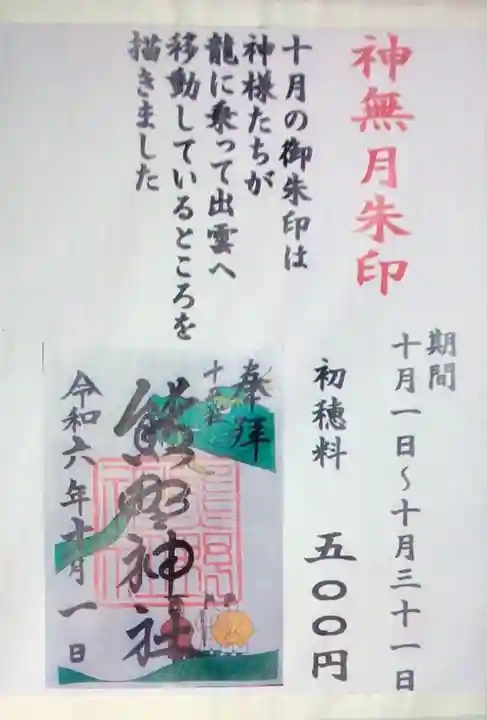 神無月朱印
十月の御朱印は
神様たちが
龍に乗って出雲へ
移動しているところを
描きました
期間
十月一日～十月三十一日
初穂料 五〇〇円
奉拝
十二社
熊野神社
令和六年十月一日